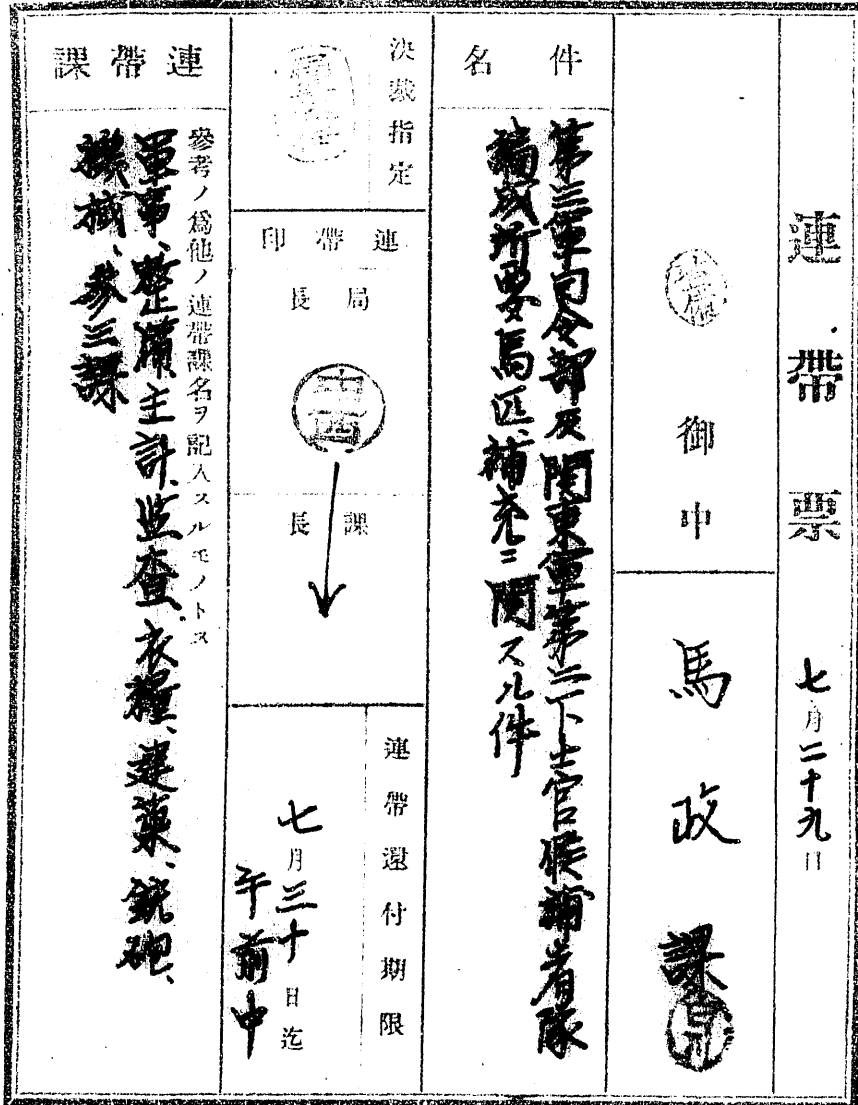 連帶票
七月二十九日
御中
馬政課
件名
第三軍司令部及関東軍第二下士官候補者隊
編成所要馬匹補充ニ関スル件
決裁指定
連帶印
局長
中西
課長
連帶還付期限
七月三十日迄
午前中
連帶課
參考ノ爲他ノ連帶課名ヲ記入スルモノトス
軍事、整備、主計、監査、衣糧、建築、銃砲、
機械、參三課